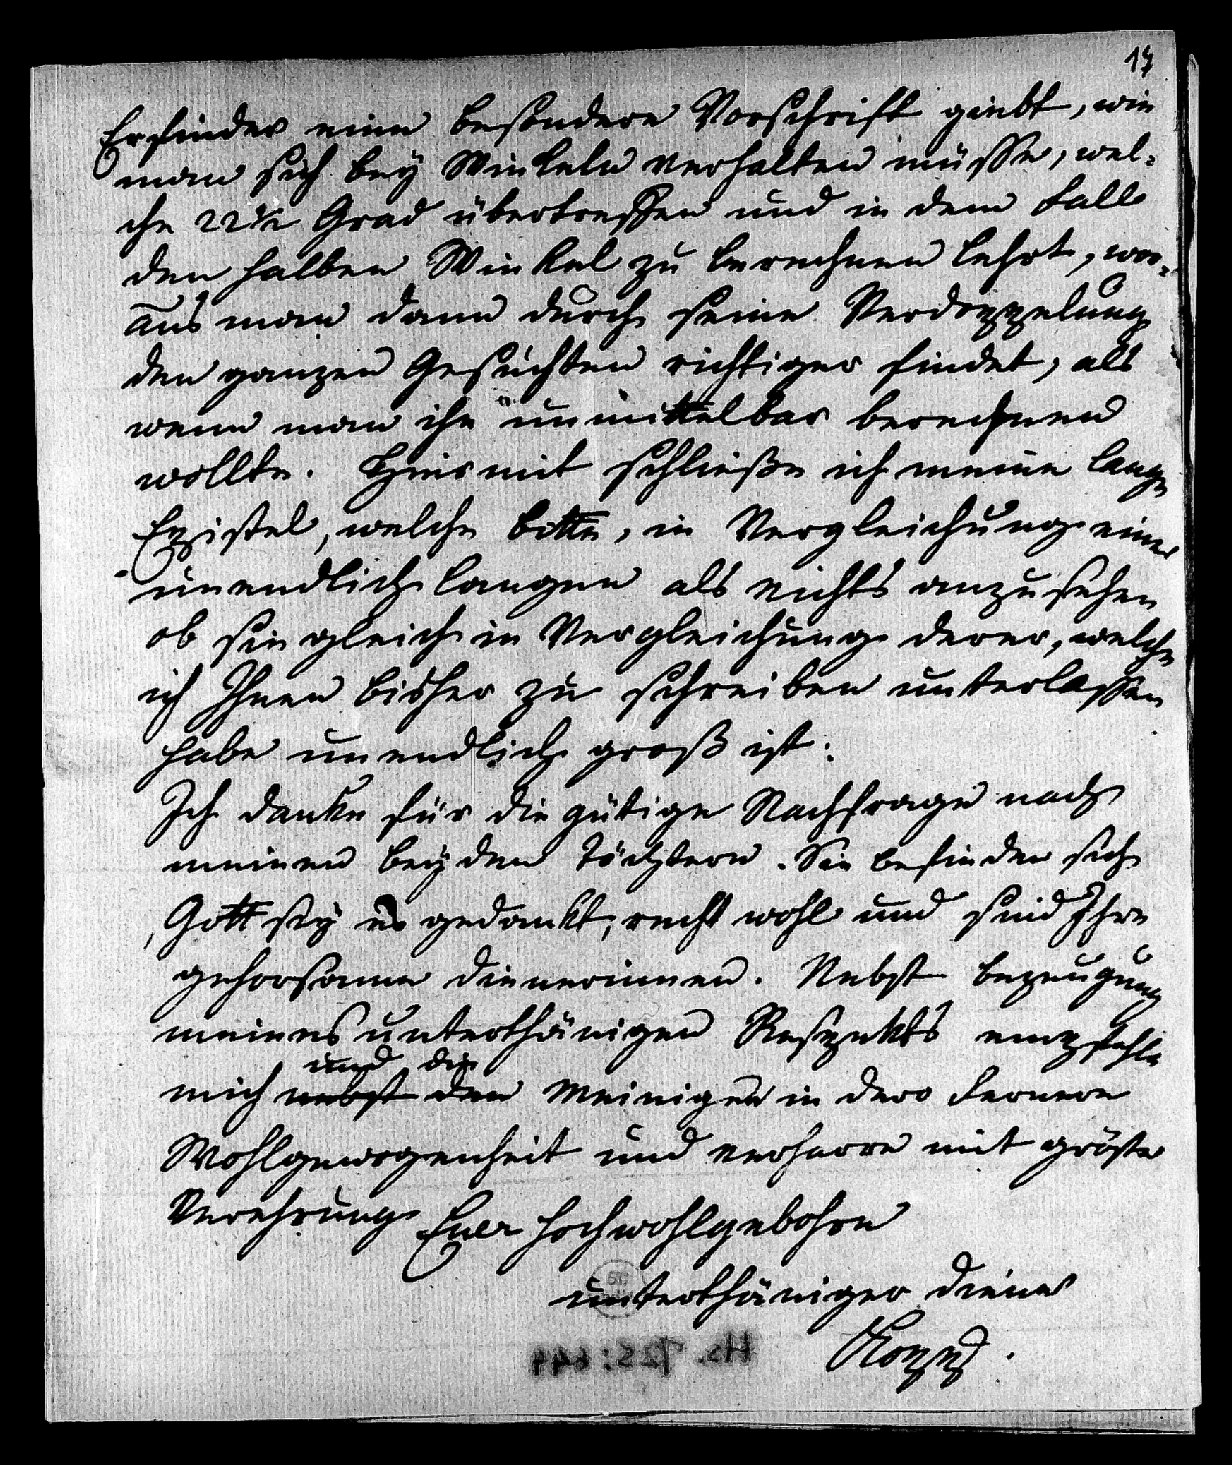 17
Erfinder eine besondere Vorschrift giebt, wie
man sich bey Winkeln verhalten müsse, wel-
che 22½ Grad übertreffen und in dem Falle
den halben Winkel zu berechnen lehrt, wor-
aus man dann durch seine Verdoppelung
den ganzen Gesuchten richtiger findet, als
wenn man ihn unmittelbar berechnen
wollte. Hiermit schließe ich meine lange
Epistel, welche bitte, in Vergleichung einer
unendlich langen als nichts anzusehen
ob sie gleich in Vergleichung derer, welche
ich Ihnen bisher zu schreiben unterlassen
habe unendlich groß ist.
Ich danke für die gütige Nachfrage nach
meinen beyden Töchtern. Sie befinden sich
, Gott sey es gedankt, recht wohl und sind Ihre
gehorsame Dienerinnen. Nebst Bezeugung
meines unterthänigen Respekts empfehle
und die
mich nebst den Meinigen in dero fernere
Wohlgewogenheit und verharre mit gröster
Verehrung Euer Hochwohlgebohrn
unterthäniger Diener
Kopp.
Hs. 725:644